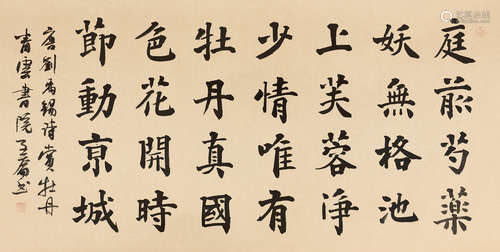 庭前芍藥
妖無格池
上芙蓉淨
少情唯有
牡丹真國
色花開時
節動京城
唐劉禹錫詩賞牡丹
青雲書院